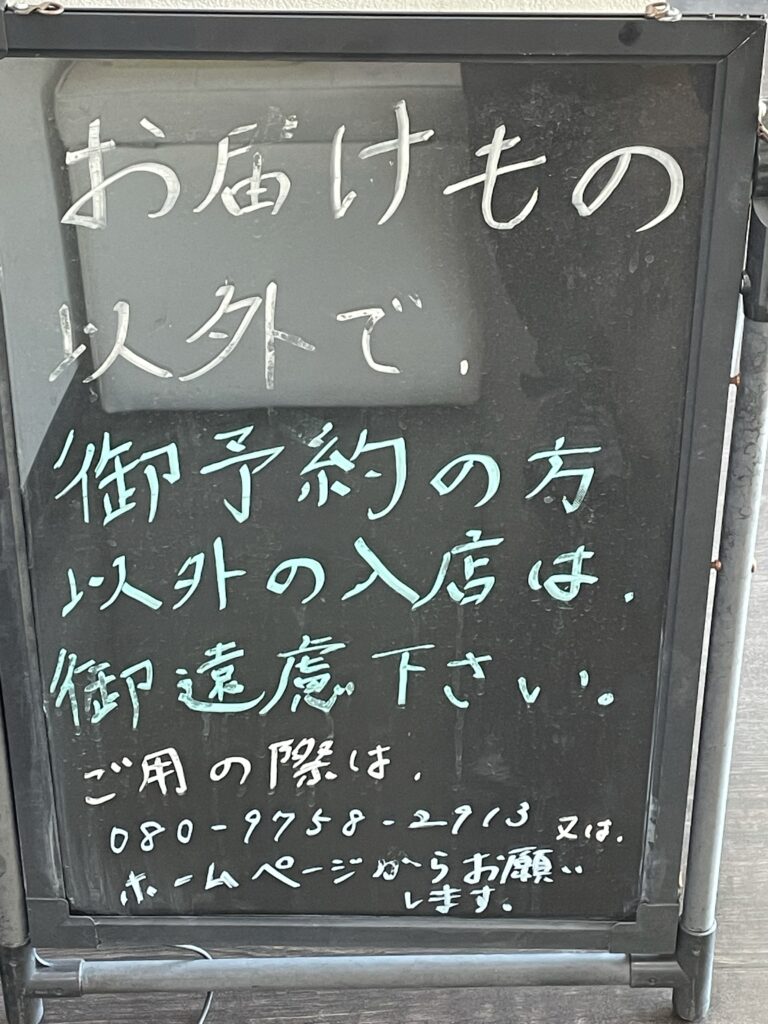 お届けもの
以外で.
御予約の方
以外の入店は.
御遠慮下さい。
ご用の際は.
080-9758-2913 又は.
ホームページからお願い
します。